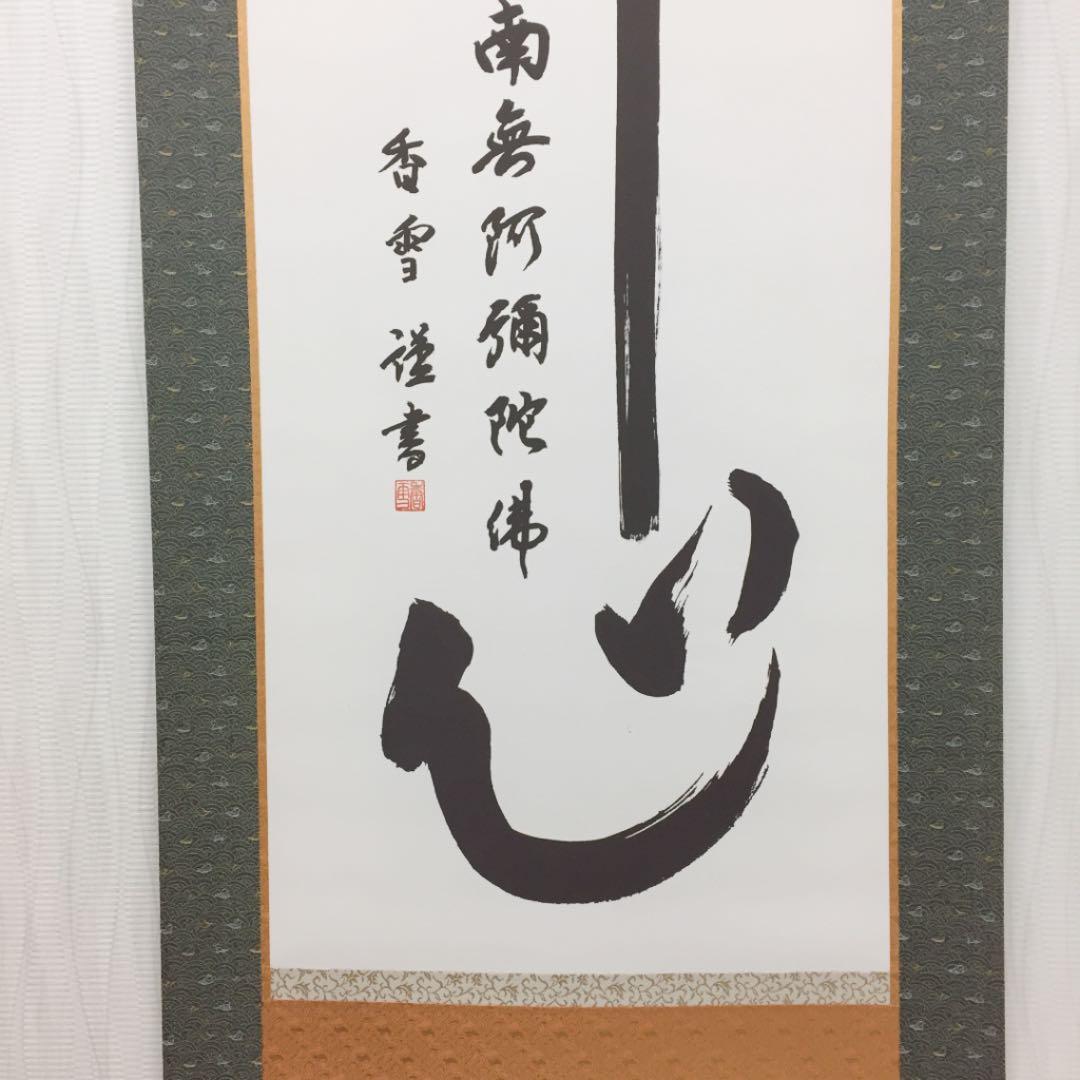 心
南無阿彌陀佛
香雪謹書
香雪